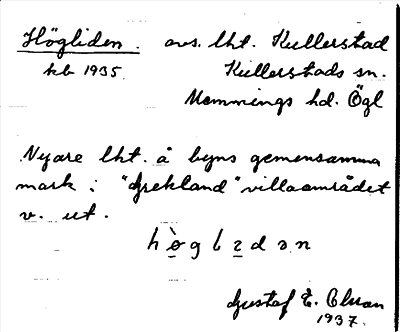 Högliden. avs. lht. Kullerstad
kb 1935. Kullerstads sn.
Memmings hd. Ögl
Nyare lht. å byns gemensamma
mark i "Grekland" villaområdet
v. ut.
Gustaf E.
1937.